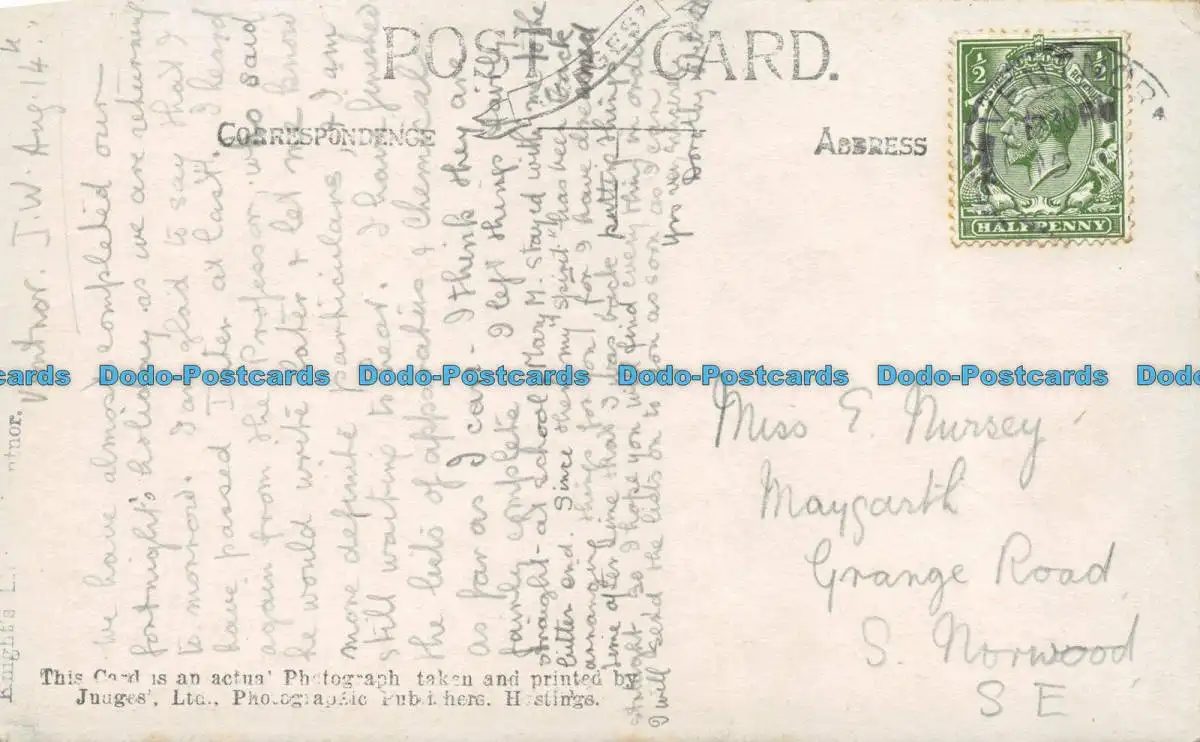 POST CARD.
CORRESPONDENCE
ADDRESS
JUDGES'
VENTNOR
12 30 PM
12
4
1/2 1/2
HALFPENNY
Ventnor. I.W. Aug. 14th
We have almost completed our
fortnight's holiday as we are returning
to morrow. I am glad to say that I
have passed Inter at last. I heard
again from the Professor who said
he would write later & let me know
more definite particulars, & I am
still waiting to hear. I have finished
the lists of apparatus & chemicals
as far as I can - I think they are
fairly complete. I left things fairly
straight - at school Mary M. stayed with me to the
bitter end. Since then my "spirit" has been back
arranging things for you, for I have dreamed
time after time that I was back putting things
straight, so I hope you will find everything in order.
I will send the lists on to you as soon as I can
Yrs very sincerely
Dorothy
Miss E. Nursey
Maygarth
Grange Road
S. Norwood
S E
This Card is an actual Photograph taken and printed by
Judges', Ltd., Photographic Publishers. Hastings.
Knight's Ventnor.
Dodo-Postcards Dodo-Postcards Dodo-Postcards Dodo-Postcards Dodo-Postcards Dodo-Postcards